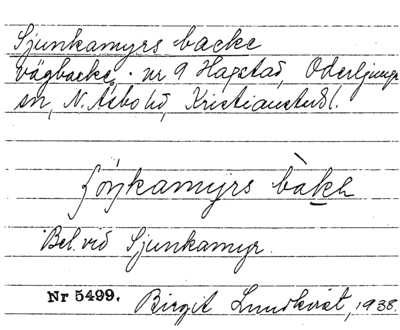 Sjunkamyrs backe
vägbacke, nr 9 Hagstad, Oderljunga
sn, N. Åsbo hd, Kristianstads l.
ʃoŋkamyrs bàkə
Bel. vid Sjunkamyr.
Nr 5499. Birgit Lundkvist, 1938.